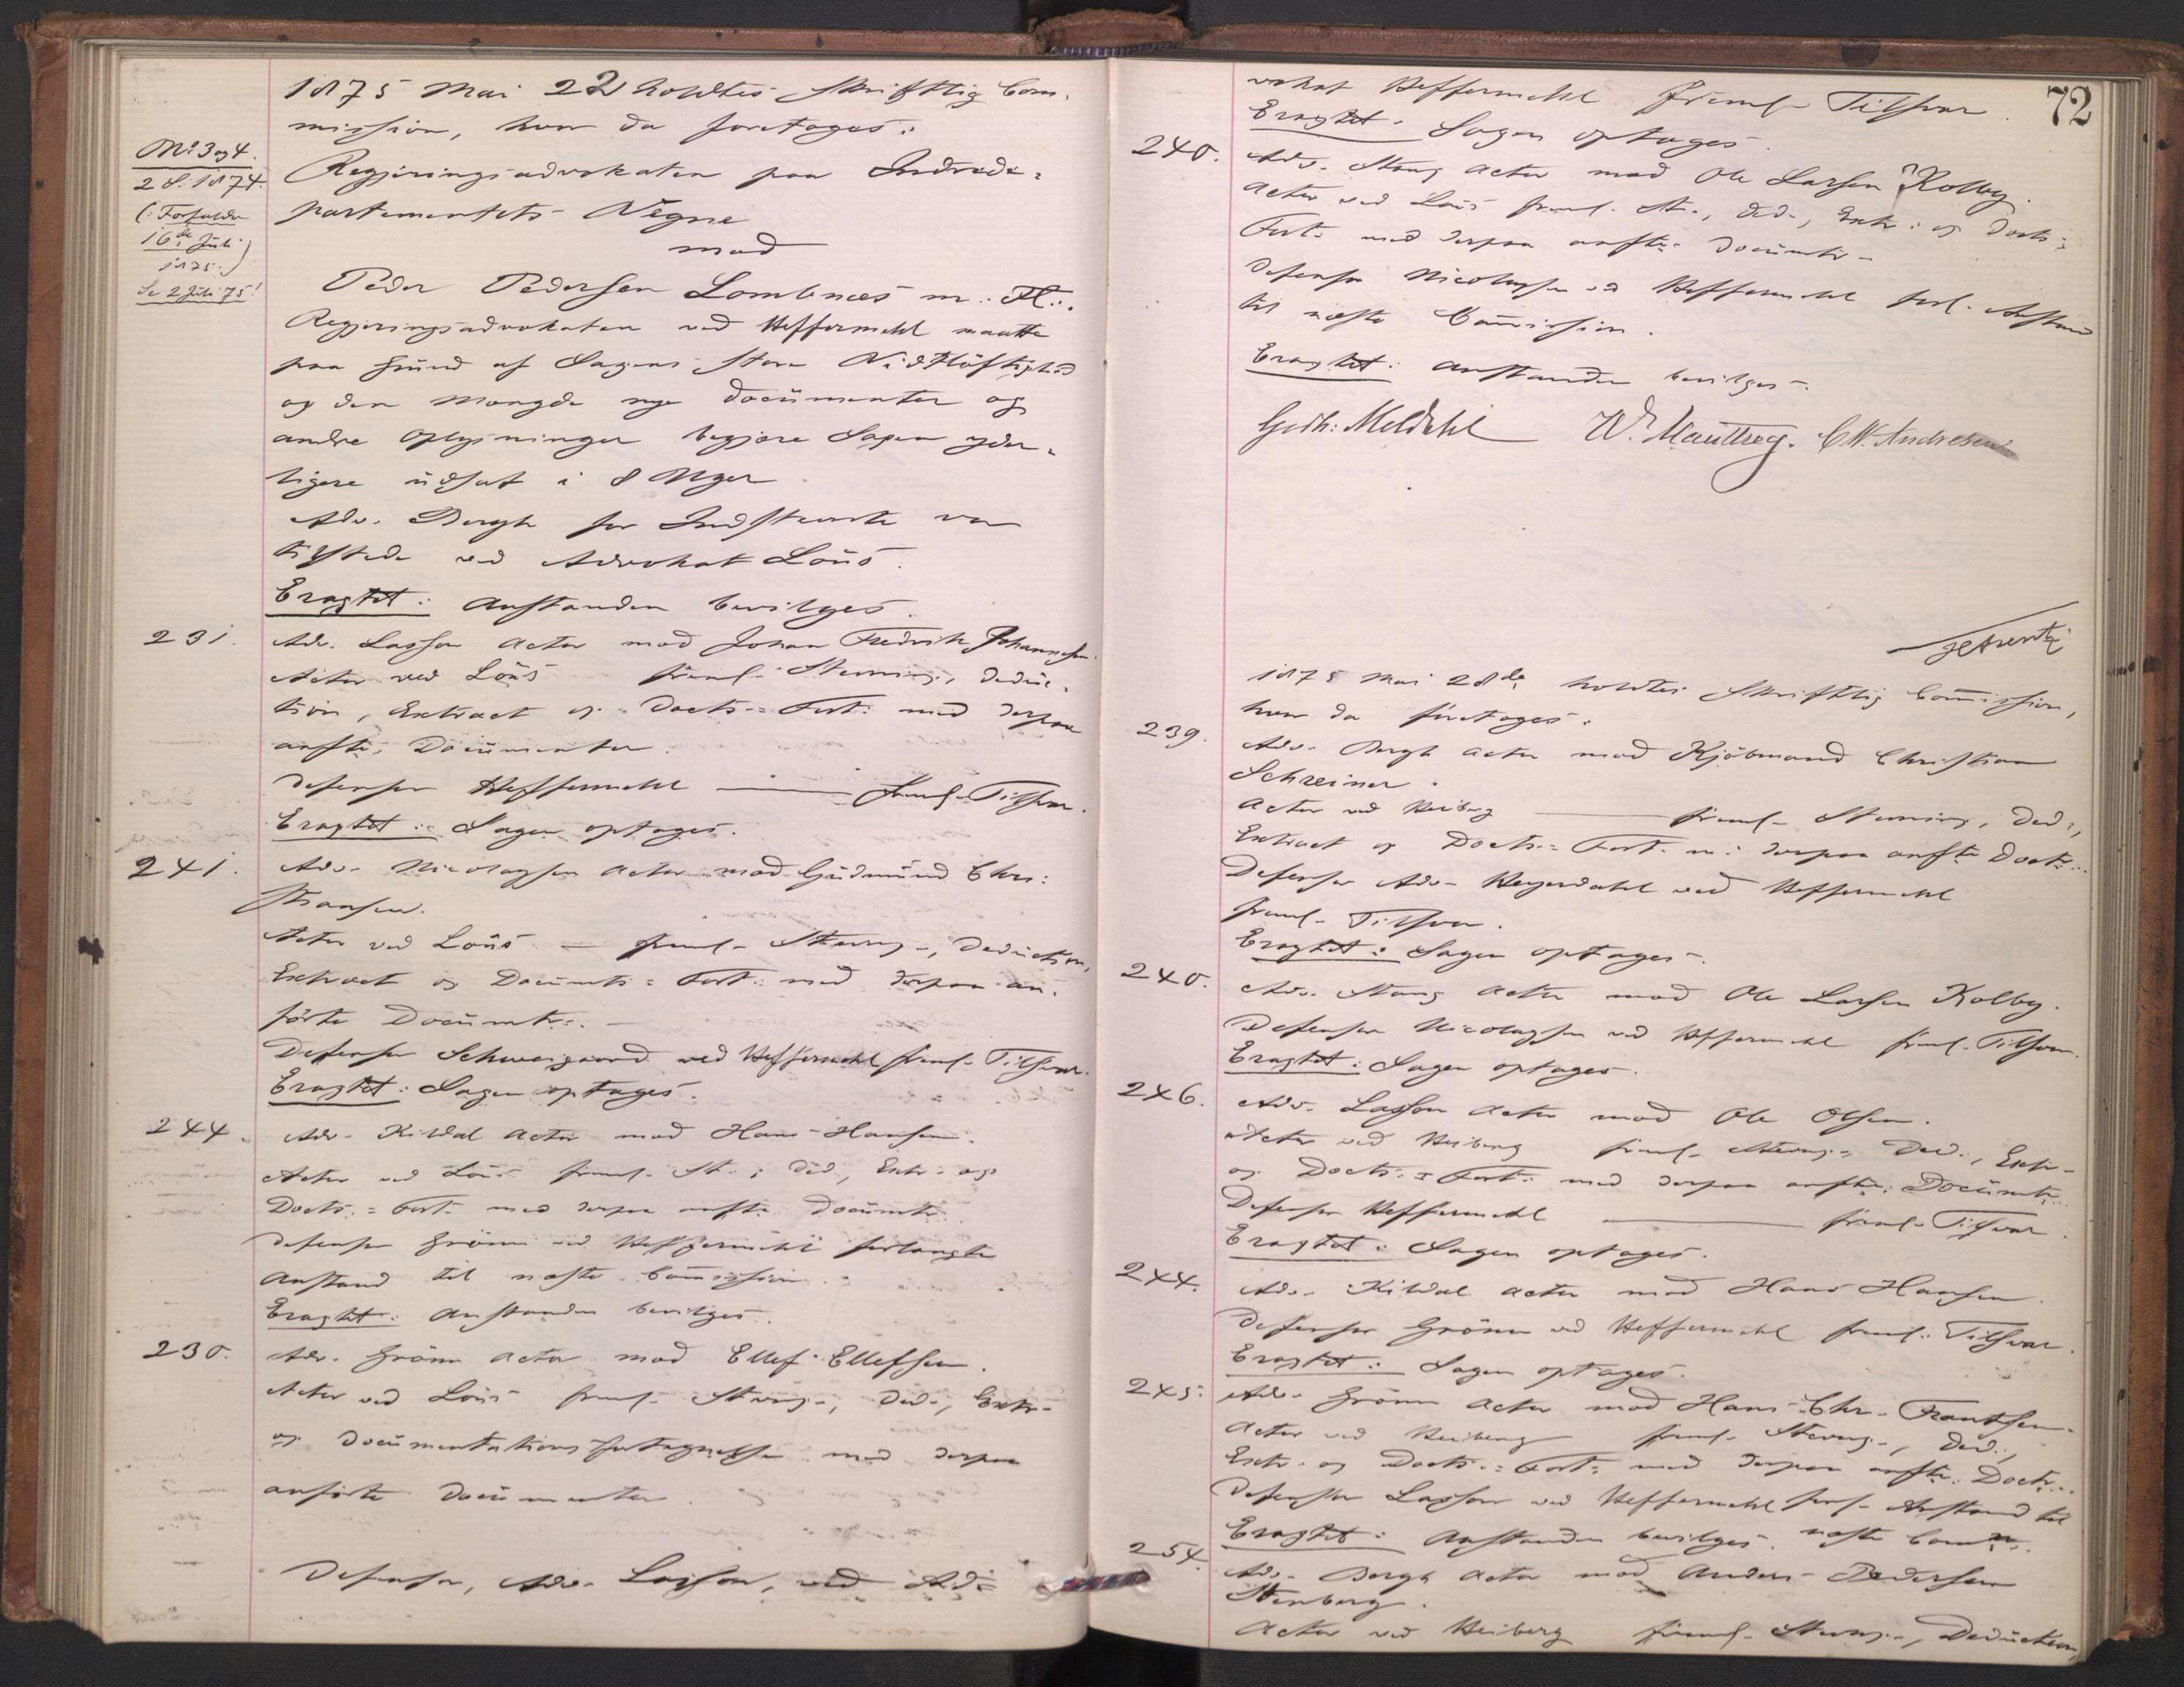 1875 Mai 22 holdtes Skriftlig Com-
mission, hvor da foretages:
No 3 og 4.
2 S. 1874.
(: Forfalder
16de Juli
1875.)
Se 2 Juli 75!
Regjeringsadvokaten paa Indrede-
partementets Vegne
mod
Peder Pedersen Lombnæs m. Fl.
Regjeringsadvokaten ved Heffermehl maatte
paa Grund af Sagens store Vidtløftighed
og den Mængde nye Documenter og
andre Oplysninger begjære Sagen yder-
ligere udsat i 8 Uger
Adv. Bergh for Indstevnte var
tilstede ved Advokat Lous.
Eragtet: Anstanden bevilges.
231.
Adv. Lasson Actor mod Johan Fredrik Johannesen.
Actor ved Lous freml. Stevning, Deduc-
tion, Extract og Docts.-Fort. med derpaa
anførte Documenter.
Defensor Heffermehl freml. Tilsvar.
Eragtet: Sagen optages.
241.
Adv. Nicolaysen Actor mod Gudmund Chri-
stiansen.
Actor ved Lous - freml. Stevng., Deduction,
Extract og Documts.-Fort. med derpaa an-
førte Documtr.
Defensor Schweigaard ved Heffermehl freml. Tilsvar.
Eragtet: Sagen optages.
244.
Adv. Kildal Actor mod Hans Hansen.
Actor ved Lous freml. St., Ded., Extr. og
Docts.-Fort. med derpaa anførte Documtr.
Defensor Grönn ved Heffermehl forlangte
Anstand til næste Commission.
Eragtet: Anstanden bevilges.
230.
Adv. Grönn Actor mod Ellef Ellefsen.
Actor ved Lous freml. Stevng., Ded., Extr.
og Documentationsfortegnelse med derpaa
anførte Documenter.
Defensor, Adv. Lasson, ved Ad-
72
vokat Heffermehl freml. Tilsvar.
Eragtet: Sagen optages.
240.
Adv. Stang Actor mod Ole Larsen Kolby.
Actor ved Lous freml. St., Ded., Extr. og Docts.-
Fort. med derpaa anførte Documtr.
Defensor Nicolaysen ved Heffermehl forl. Anstand
til næste Commission.
Eragtet: Anstanden bevilges.
Godh: Meldahl W. C. N. Andresen
1875 Mai 28de holdtes Skriftlig Commission,
hvor da foretages:
239.
Adv. Bergh Actor mod Kjöbmand Christian
Schreiner.
Actor ved Heiberg freml. Stevning, Ded.,
Extract og Docts.-Fort. m. derpaa anførte Doctr.
Defensor Adv. Heyerdahl ved Heffermehl
freml. Tilsvar.
Eragtet: Sagen optages.
240.
Adv. Stang Actor mod Ole Larsen Kolby.
Defensor Nicolaysen ved Heffermehl freml. Tilsvar.
Eragtet: Sagen optages.
246.
Adv. Lasson Actor mod Ole Olsen.
Actor ved Heiberg freml. Stevng., Ded., Extr.
og Docts.-Fort. med derpaa anførte Documtr.
Defensor Heffermehl freml. Tilsvar.
Eragtet: Sagen optages.
244.
Adv. Kildal Actor mod Hans Hansen.
Defensor Grönn ved Heffermehl freml. Tilsvar.
Eragtet: Sagen optages.
245.
Adv. Grönn Actor mod Hans Chr. Frantsen.
Actor ved Heiberg freml. Stevng., Ded.,
Extr. og Docts.-Fort. med derpaa anførte Doctr.
Defensor Lasson ved Heffermehl forl. Anstand til
Eragtet: Anstanden bevilges. næste Comn.
254.
Adv. Bergh Actor mod Anders Pedersen
Stenberg.
Actor ved Heiberg freml. Stevng., Deduction,